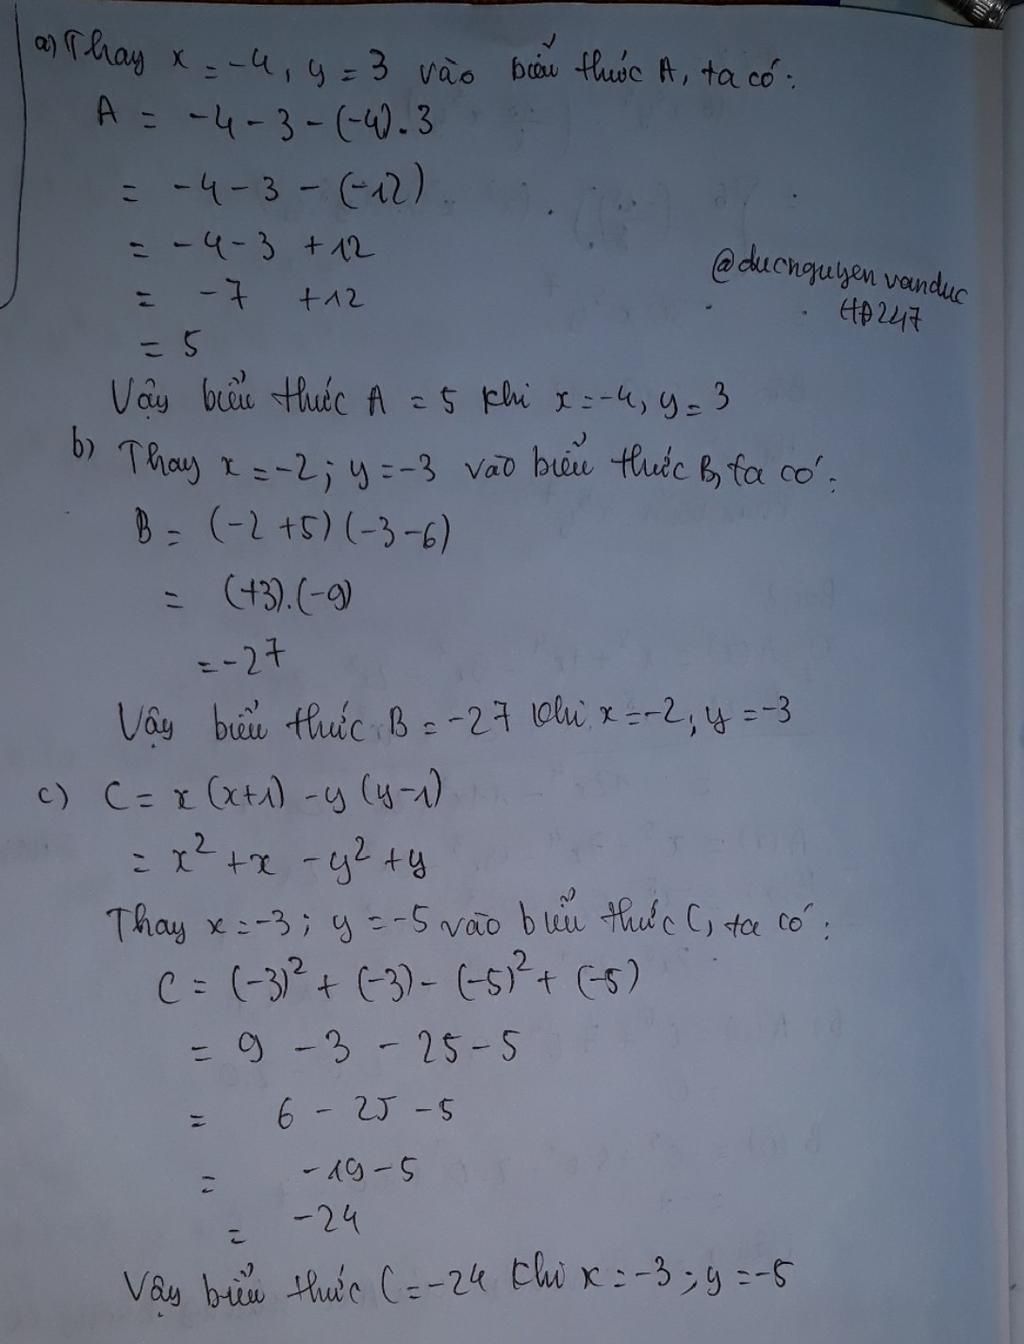 a) Thay x = -4, y = 3 vào biểu thức A, ta có:
A = -4 - 3 - (-4).3
= -4 - 3 - (-12)
= -4 - 3 + 12
= -7 + 12
= 5
@ducnguyenvanduc
HĐ247
Vậy biểu thức A = 5 khi x = -4, y = 3
b) Thay x = -2; y = -3 vào biểu thức B, ta có:
B = (-2 + 5) (-3 - 6)
= (+3).(-9)
= -27
Vậy biểu thức B = -27 khi x = -2; y = -3
c) C = x (x+1) - y (y-1)
= x² + x - y² + y
Thay x = -3; y = -5 vào biểu thức C, ta có:
C = (-3)² + (-3) - (-5)² + (-5)
= 9 - 3 - 25 - 5
= 6 - 25 - 5
= -19 - 5
= -24
Vậy biểu thức C = -24 khi x = -3; y = -5